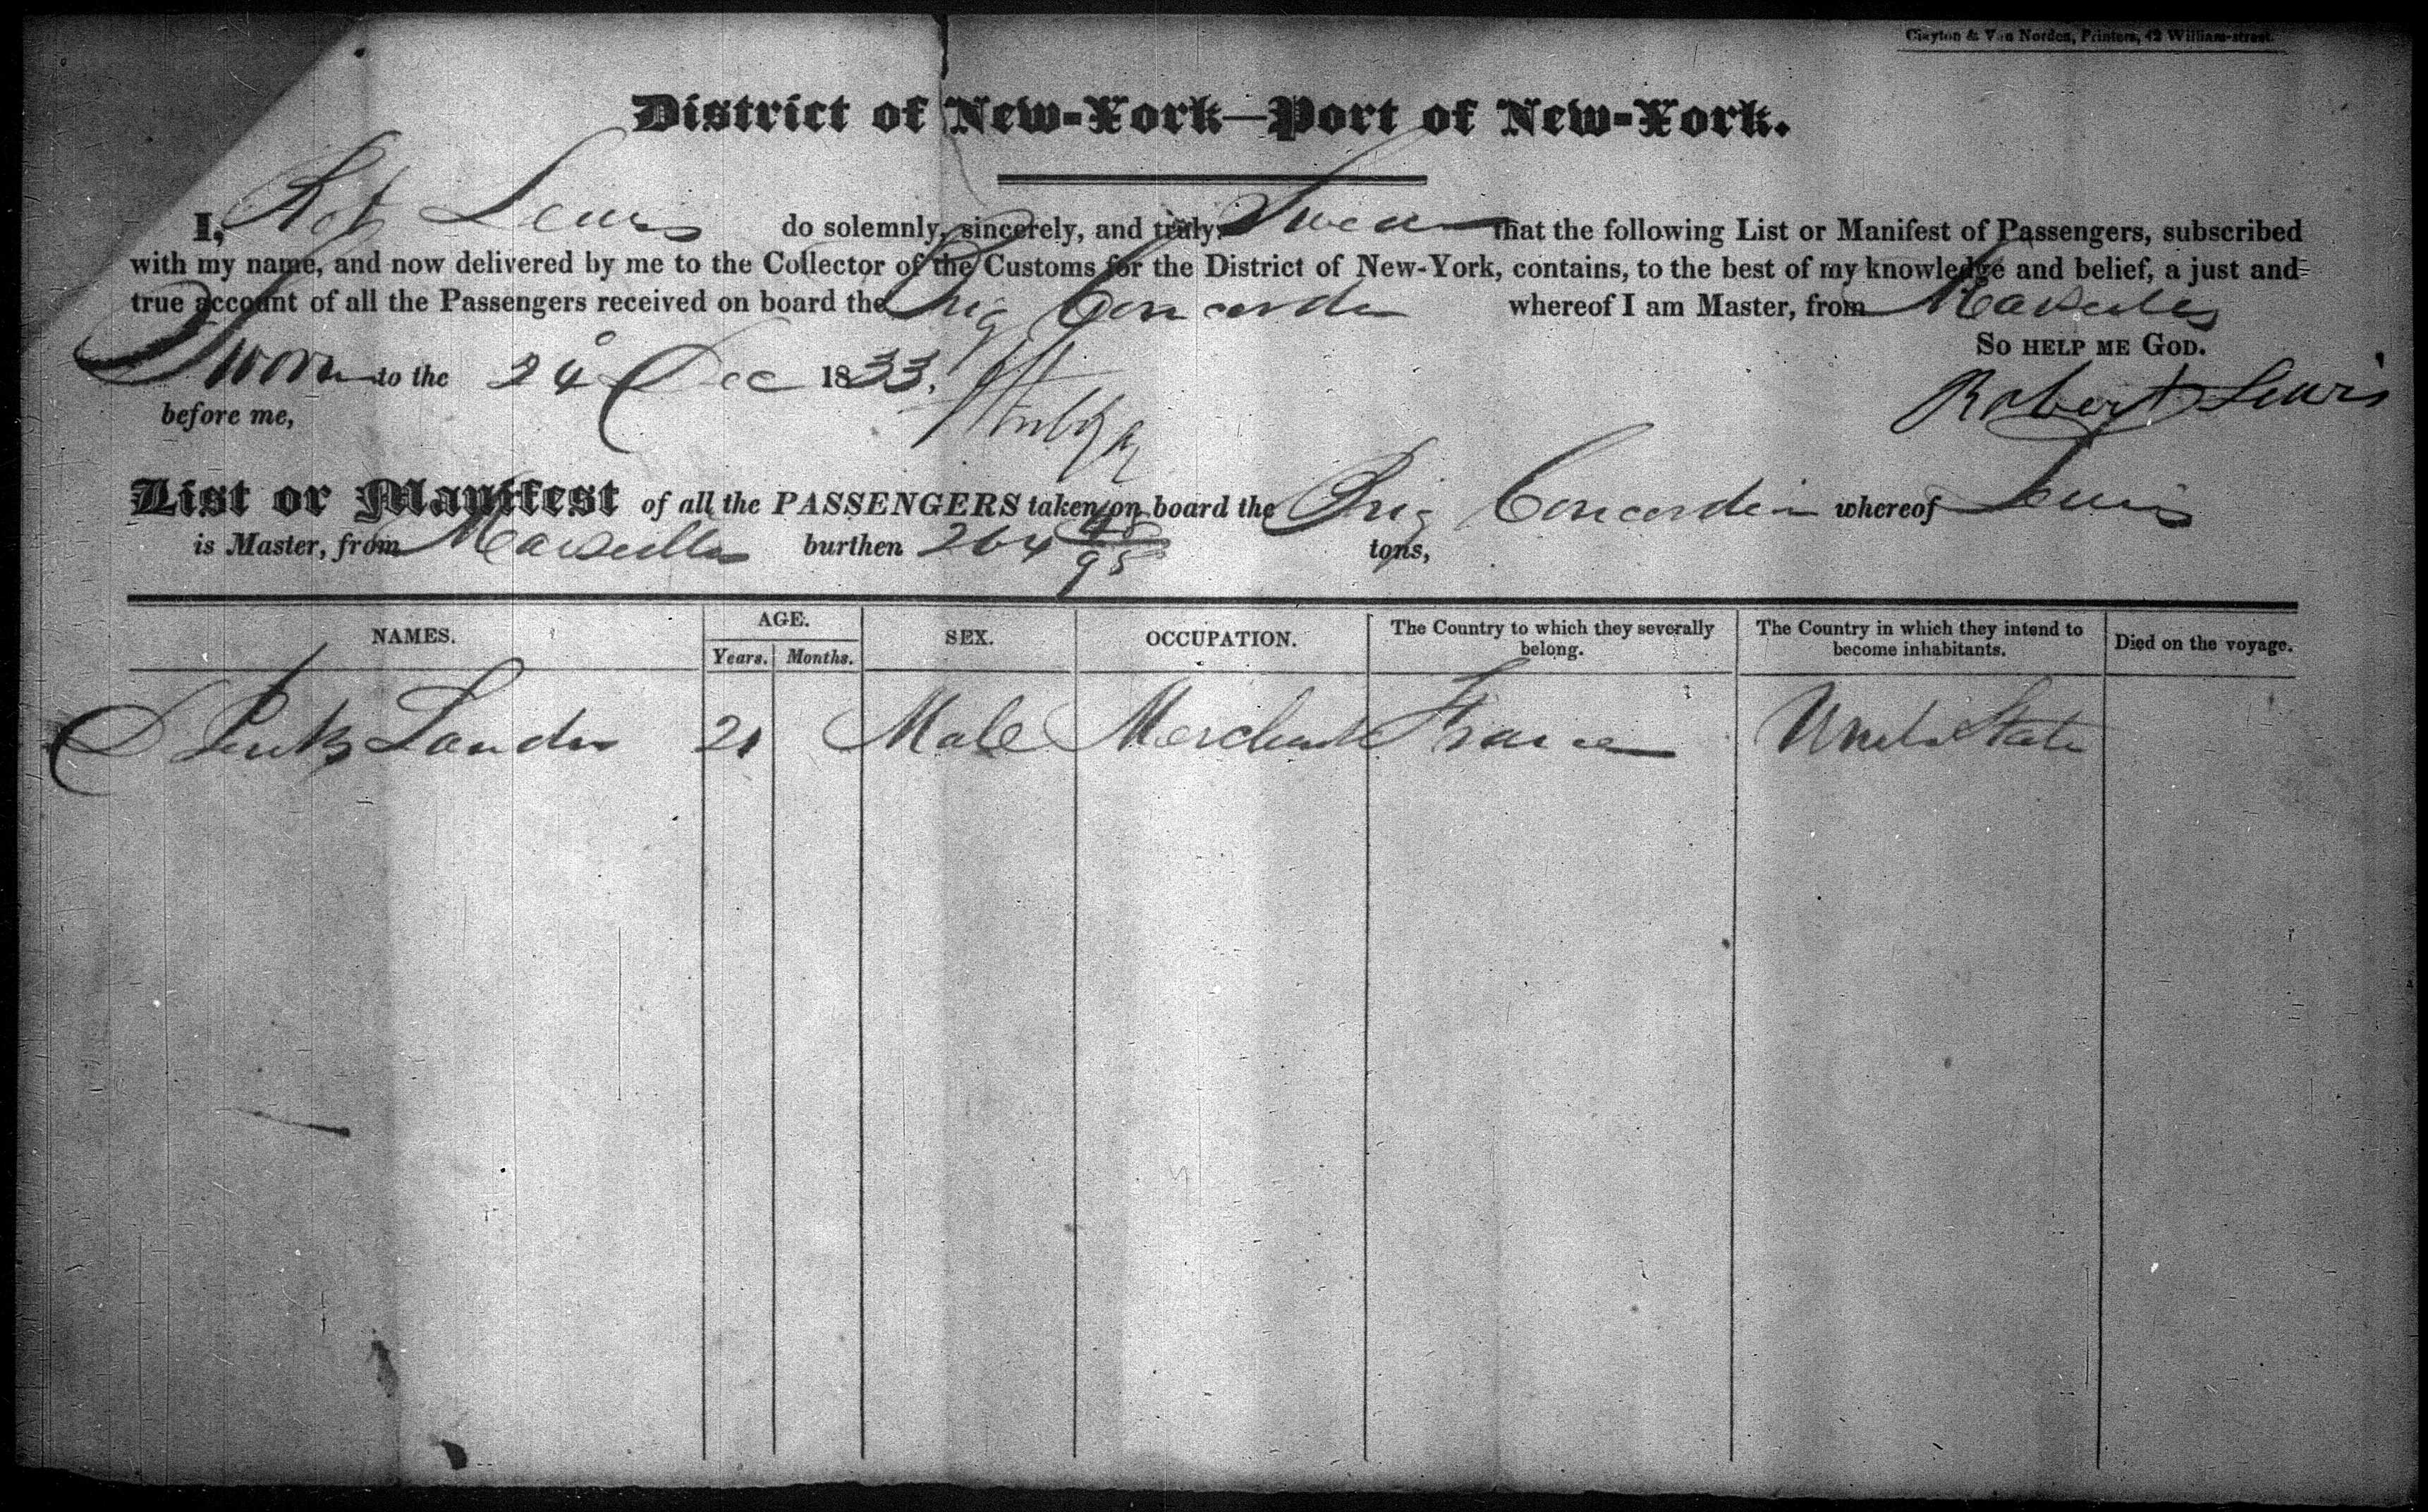 Clayton & Van Norden, Printers, 42 William-street.
District of New-York—Port of New-York.
I, Robt Lewis do solemnly, sincerely, and truly, Swear that the following List or Manifest of Passengers, subscribed
with my name, and now delivered by me to the Collector of the Customs for the District of New-York, contains, to the best of my knowledge and belief, a just and
true account of all the Passengers received on board the Brig Concordia whereof I am Master, from Marseilles
So help me God.
Sworn to the 24 Dec 1833.
before me,
Robert Lewis
List or Manifest of all the PASSENGERS taken on board the Brig Concordia whereof Lewis
is Master, from Marseilles burthen 264 /95 tons,
NAMES. AGE. SEX. OCCUPATION. The Country to which they severally belong. The Country in which they intend to become inhabitants. Died on the voyage.
Years. Months.
21 Male Merchant France United States